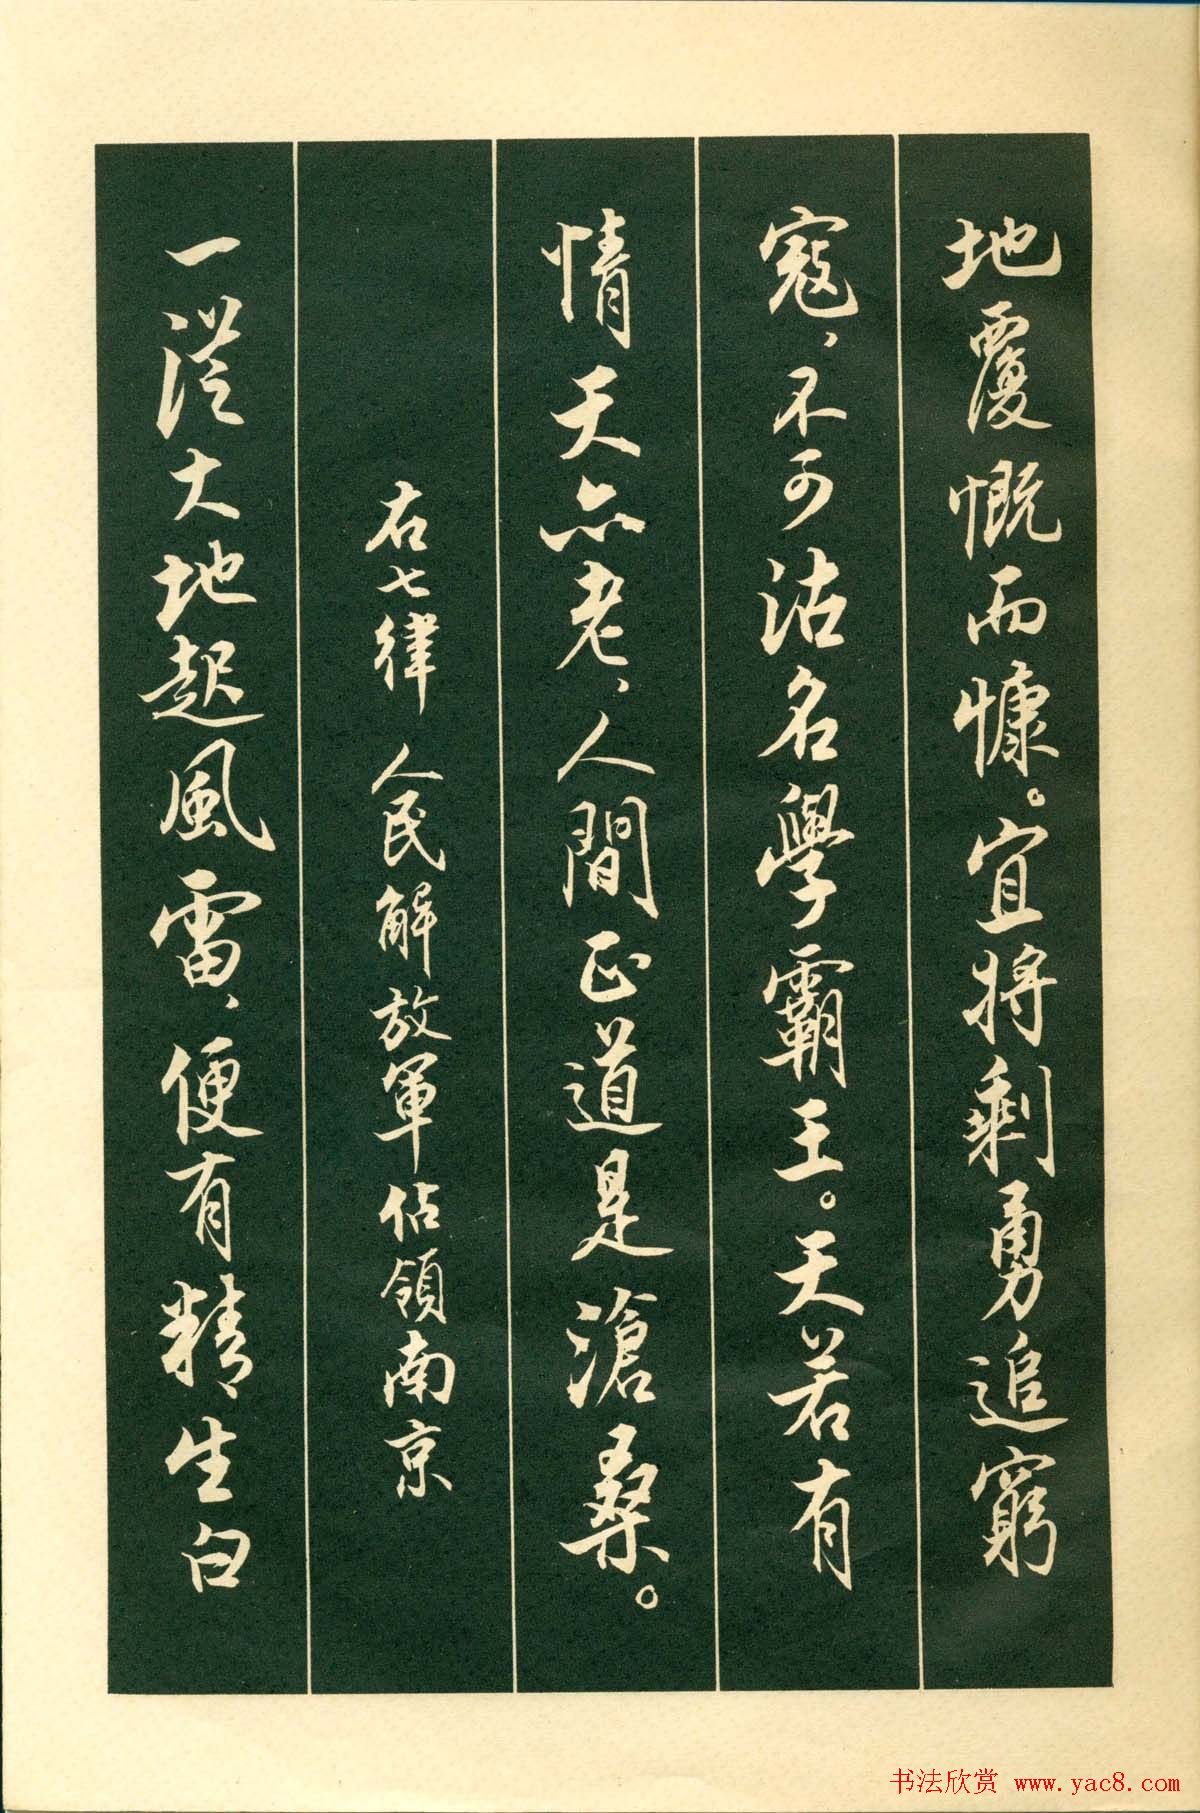 地覆慨而慷。宜将剩勇追窮
寇、不可沽名學霸王。天若有
情天亦老、人間正道是滄桑。
右七律 人民解放軍佔領南京
一從大地起風雷、便有精生白
书法欣赏 www.yac8.com